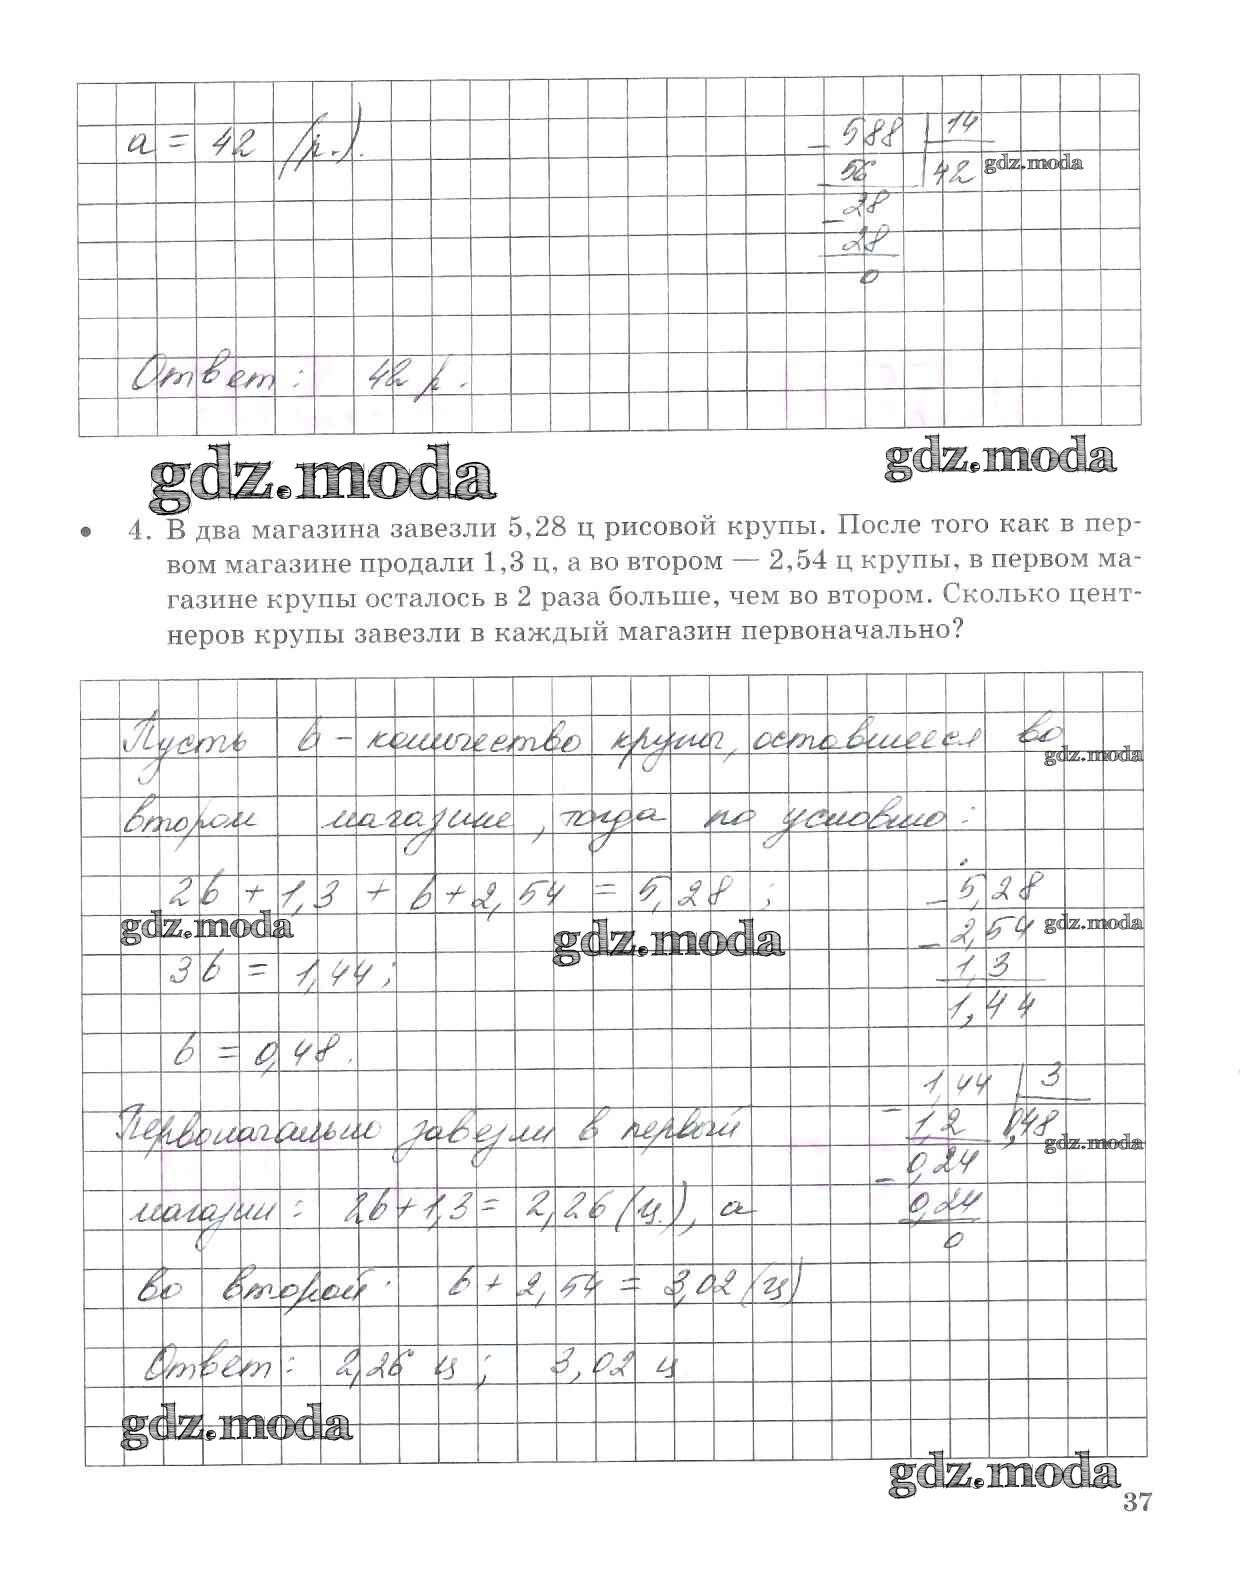 a = 42 (р.).
588 14
56 42 gdz.moda
28
28
0
Ответ: 42 р.
gdz.moda gdz.moda
• 4. В два магазина завезли 5,28 ц рисовой крупы. После того как в пер-
вом магазине продали 1,3 ц, а во втором — 2,54 ц крупы, в первом ма-
газине крупы осталось в 2 раза больше, чем во втором. Сколько цент-
неров крупы завезли в каждый магазин первоначально?
Пусть b - количество крупы, оставшееся во
gdz.moda
втором магазине, тогда по условию:
2b + 1,3 + b + 2,54 = 5,28 ;
- 5,28
gdz.moda gdz.moda
- 2,54 gdz.moda
3b = 1,44 ;
1,3
1,44
b = 0,48.
1,44 3
Первоначально завезли в первый
- 1,2 0,48
gdz.moda
- 0,24
магазин: 2b + 1,3 = 2,26 (ц.), а
0,24
0
во второй: b + 2,54 = 3,02 (ц)
Ответ: 2,26 ц ; 3,02 ц
gdz.moda
gdz.moda
37